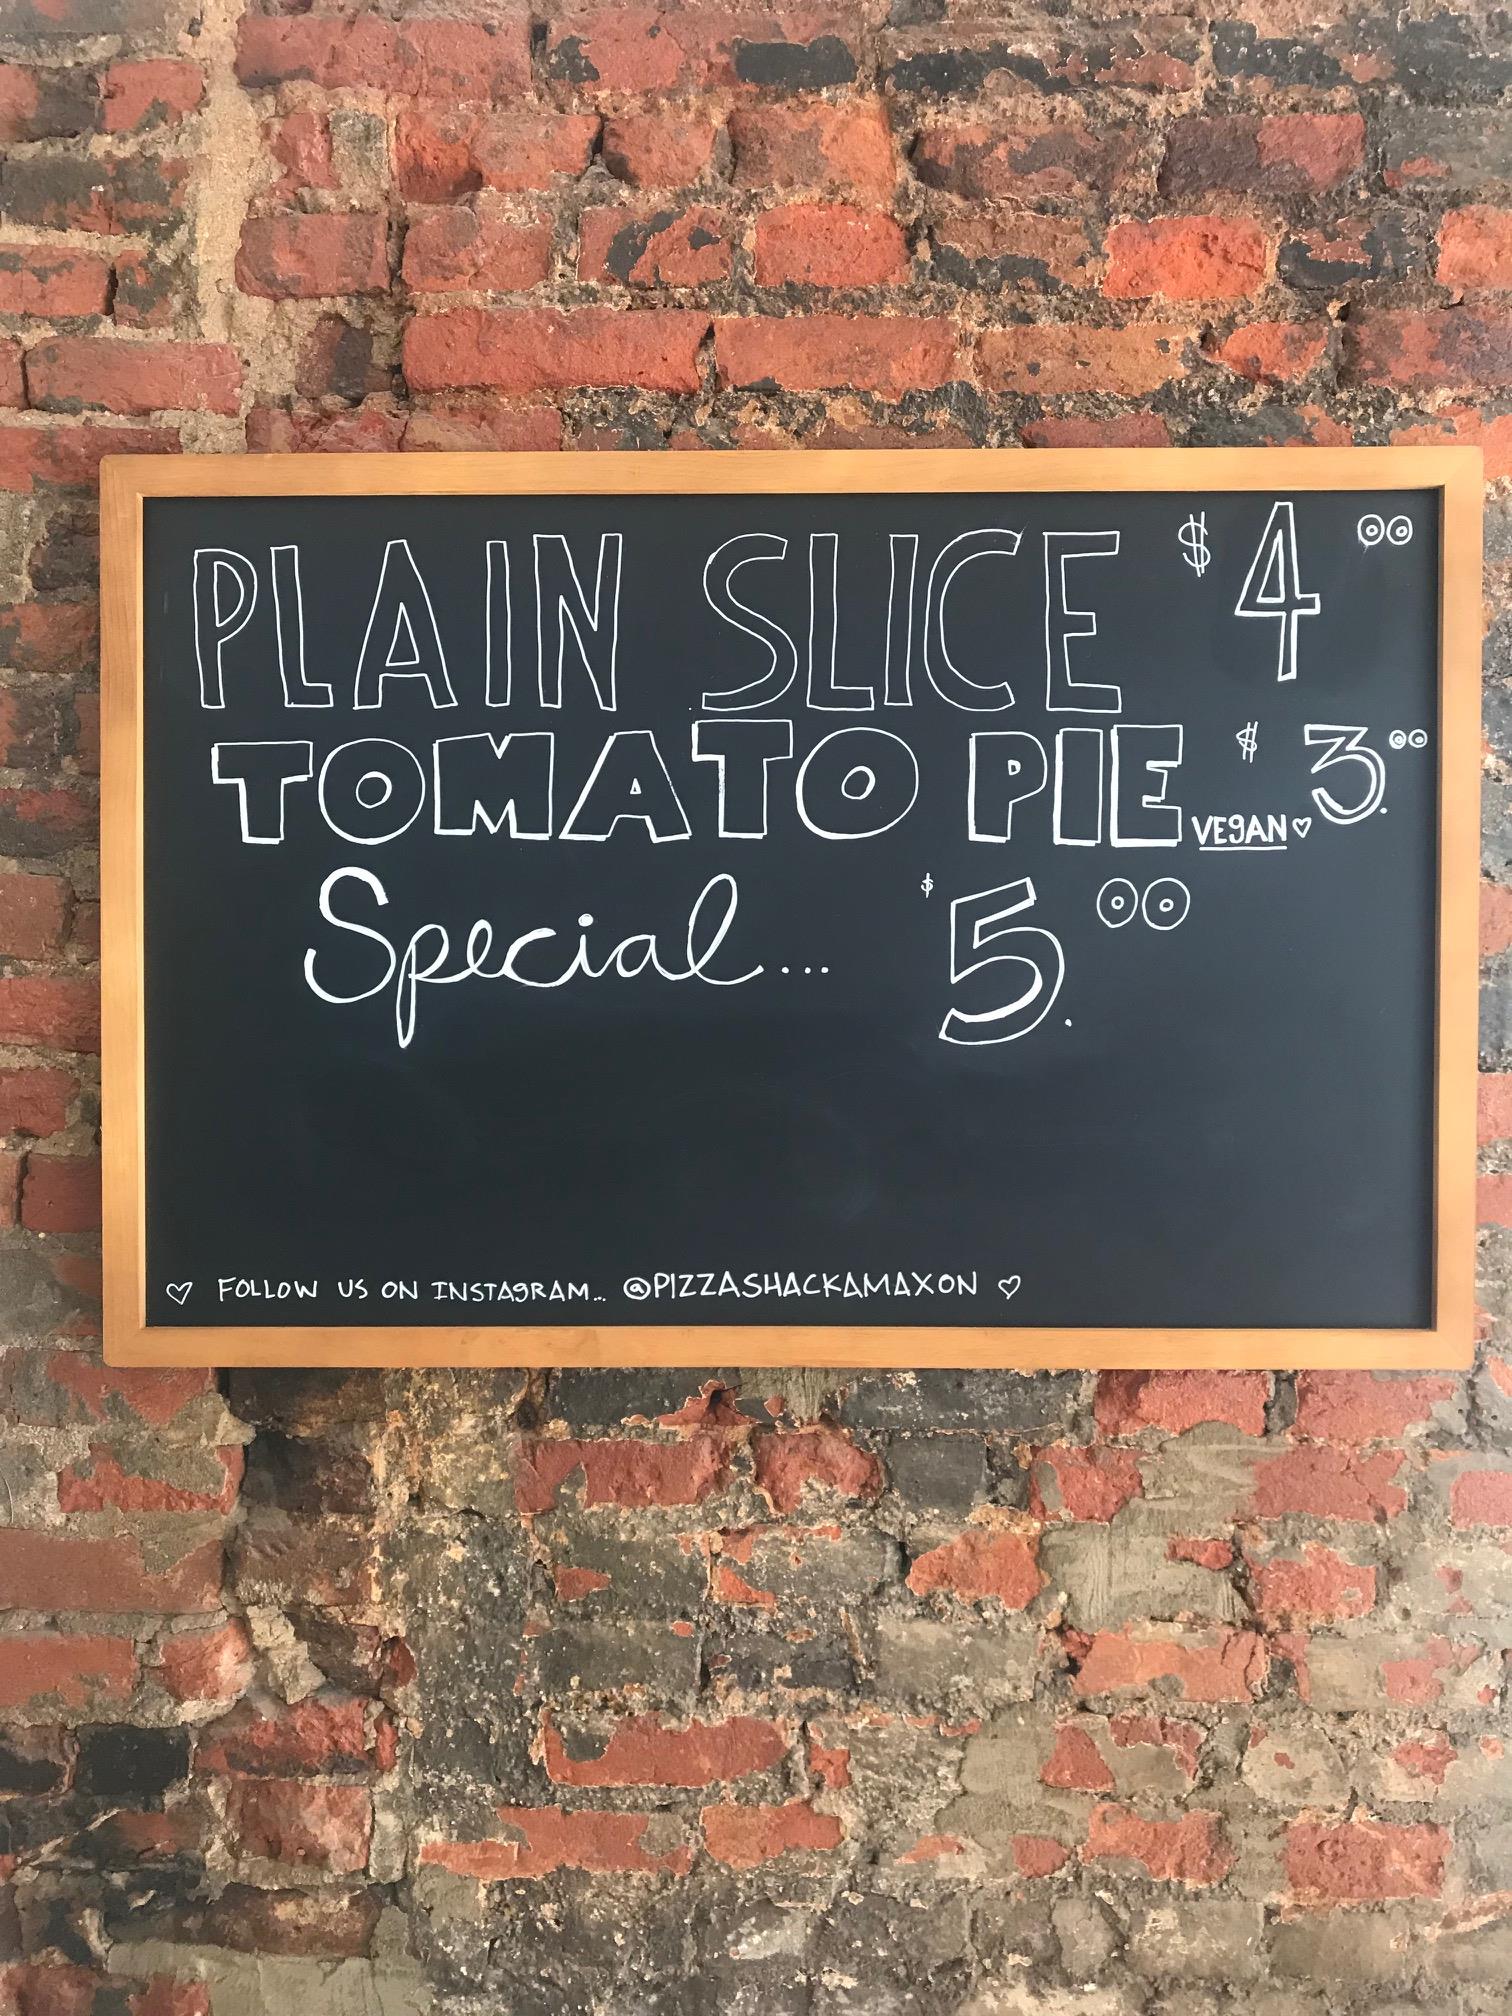 PLAIN SLICE $4 00
TOMATO PIE VEGAN♡ $3.00
Special... $5.00
♡ FOLLOW US ON INSTAGRAM... @PIZZASHACKAMAXON ♡